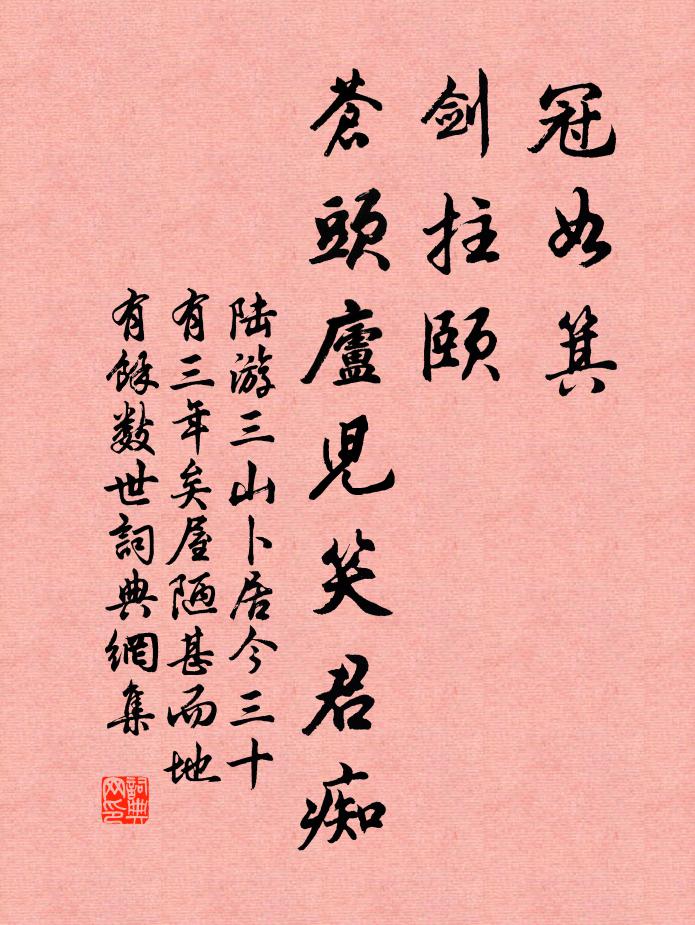 冠如箕
剑拄颐
蒼頭廬児笑君痴
陆游三山卜居今三十
有三年矣屋陋甚而地
有餘数世詞典網集
詞典
网印